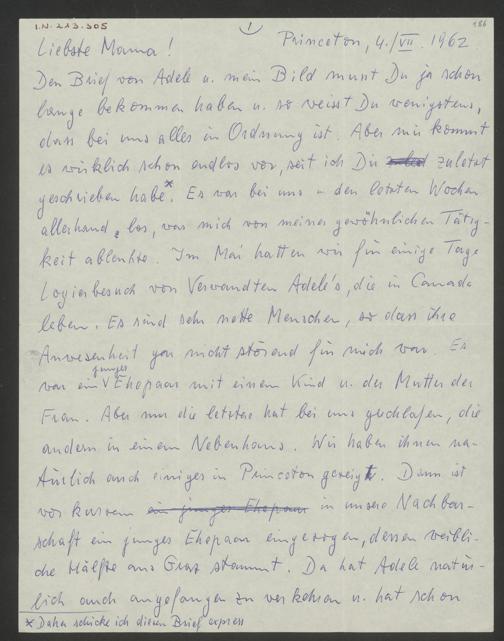 I.N. 213.305
1
186
Princeton, 4./VII. 1962
Liebste Mama!
Den Brief von Adele u. mein Bild musst Du ja schon
lange bekommen haben u. so weisst Du wenigstens,
dass bei uns alles in Ordnung ist. Aber mir kommt
es wirklich schon endlos vor, seit ich Dir zuletzt
geschrieben habe*. Es war bei uns in den letzten Wochen
allerhand los, was mich von meiner gewöhnlichen Tätig-
keit ablenkte. Im Mai hatten wir für einige Tage
Logierbesuch von Verwandten Adele's, die in Canada
leben. Es sind sehr nette Menschen, so dass ihre
Anwesenheit gar nicht störend für mich war. Es
war ein junges Ehepaar mit einem Kind u. der Mutter der
Frau. Aber nur die letztere hat bei uns geschlafen, die
andern in einem Nebenhaus. Wir haben ihnen na-
türlich auch einiges in Princeton gezeigt. Dann ist
vor kurzem ein junges Ehepaar in unsere Nachbar-
schaft ein junges Ehepaar eingezogen, dessen weibli-
che Hälfte aus Graz stammt. Da hat Adele natür-
lich auch angefangen zu verkehren u. hat schon
* Daher schicke ich diesen Brief express